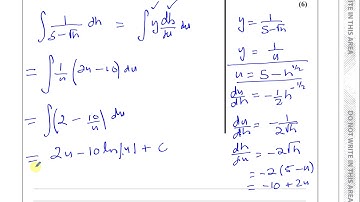 (6)
∫ 1/(5-√h) dh = ∫ y dh/du du
= ∫ 1/u (2u-10) du
= ∫ (2 - 10/u) du
= 2u - 10 ln|u| + c
y = 1/(5-√h)
y = 1/u
u = 5 - h^(1/2)
du/dh = -1/2 h^(-1/2)
du/dh = -1/(2√h)
dh/du = -2√h
= -2(5-u)
= -10 + 2u
WRITE IN THIS AREA
DO NOT WRITE IN THIS AREA